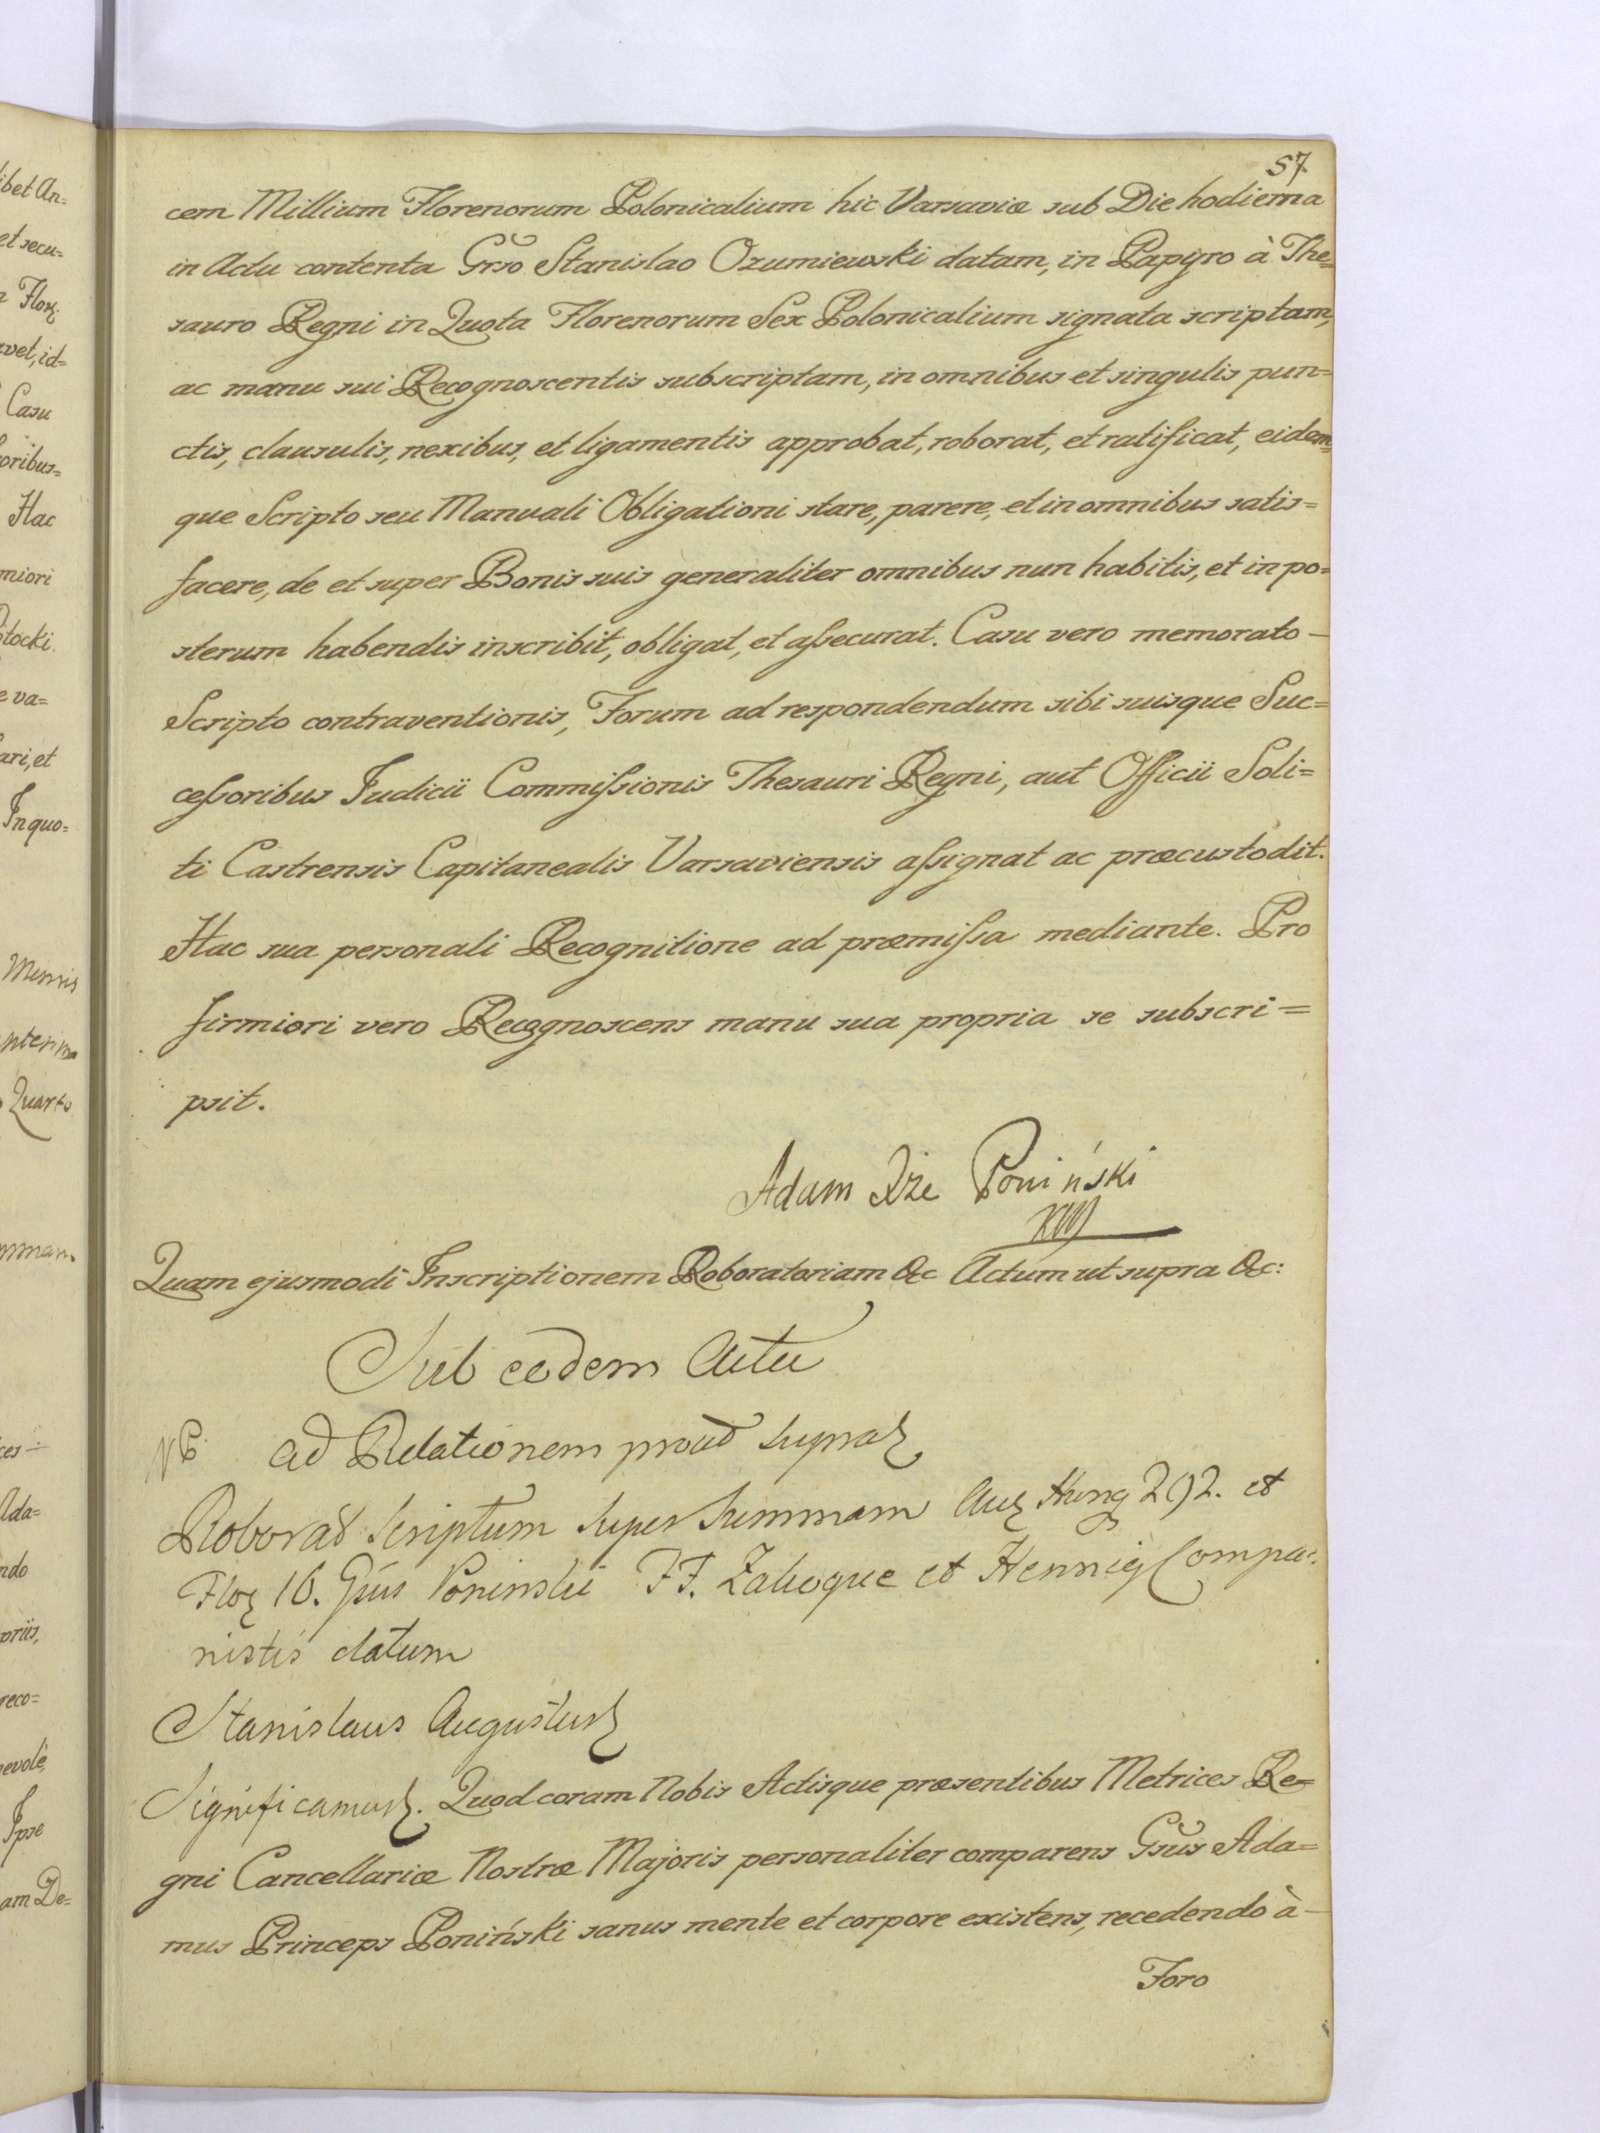 57.
cem Millium Florenorum Polonicalium hic Varsaviæ sub Die hodierna
in Actu contenta Grso Stanislao Ozumiewski datam, in Papyro à The=
sauro Regni in Quota Florenorum Sex Polonicalium signata scriptam,
ac manu sui Recognoscentis subscriptam, in omnibus et singulis pun=
ctis, clausulis, nexibus, et ligamentis approbat, roborat, et ratificat, eidem=
que Scripto seu Manuali Obligationi stare, parere, et in omnibus satis=
facere, de et super Bonis suis generaliter omnibus nun habitis, et in po=
sterum habendis inscribit, obligat, et assecurat. Casu vero memorato –
Scripto contraventionis, Forum ad respondendum sibi suisque Suc=
cessoribus Judicii Commissionis Thesauri Regni, aut Officii Soli=
ti Castrensis Capitanealis Varsaviensis assignat ac præcustodit.
Hac sua personali Recognitione ad præmissa mediante. Pro
firmiori vero Recognoscens manu sua propria se subscri=
psit.
Adam Xże Poniński
Quam ejusmodi Inscriptionem Roboratoriam &c Actum ut supra &c:
Sub eodem Actu
ad Relationem prout supra
Roborat scriptum super summam Aur Hung 292. et
Flor 16. Gsus Poninski FF. Zalioque et Hennig Compa=
nistis datum
Stanislaus Augustus
Significamus. Quod coram Nobis Actisque præsentibus Metrices Re=
gni Cancellariæ Nostræ Majoris personaliter comparens Gsus Ada=
mus Princeps Poniński sanus mente et corpore existens, recedendo à –
Foro